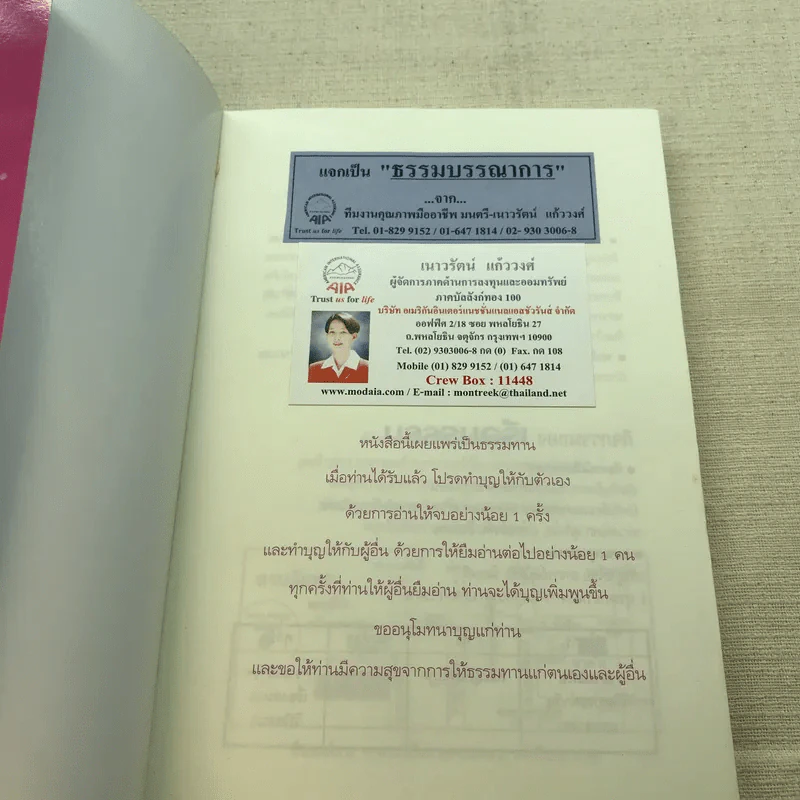 แจกเป็น "ธรรมบรรณาการ"
...จาก...
ทีมงานคุณภาพมืออาชีพ มนตรี-เนาวรัตน์ แก้ววงศ์
AIA
Trust us for life
Tel. 01-829 9152 / 01-647 1814 / 02- 930 3006-8
AMERICAN INTERNATIONAL ASSURANCE
AIA
Trust us for life
เนาวรัตน์ แก้ววงศ์
ผู้จัดการภาคด้านการลงทุนและออมทรัพย์
ภาคบัลลังก์ทอง 100
บริษัท อเมริกันอินเตอร์แนชชั่นแนลแอสชัวรันส์ จำกัด
ออฟฟิต 2/18 ซอย พหลโยธิน 27
ถ.พหลโยธิน จตุจักร กรุงเทพฯ 10900
Tel. (02) 9303006-8 กด (0) Fax. กด 108
Mobile (01) 829 9152 / (01) 647 1814
Crew Box : 11448
www.modaia.com / E-mail : montreek@thailand.net
หนังสือนี้เผยแพร่เป็นธรรมทาน
เมื่อท่านได้รับแล้ว โปรดทำบุญให้กับตัวเอง
ด้วยการอ่านให้จบอย่างน้อย 1 ครั้ง
และทำบุญให้กับผู้อื่น ด้วยการให้ยืมอ่านต่อไปอย่างน้อย 1 คน
ทุกครั้งที่ท่านให้ผู้อื่นยืมอ่าน ท่านจะได้บุญเพิ่มพูนขึ้น
ขออนุโมทนาบุญแก่ท่าน
และขอให้ท่านมีความสุขจากการให้ธรรมทานแก่ตนเองและผู้อื่น